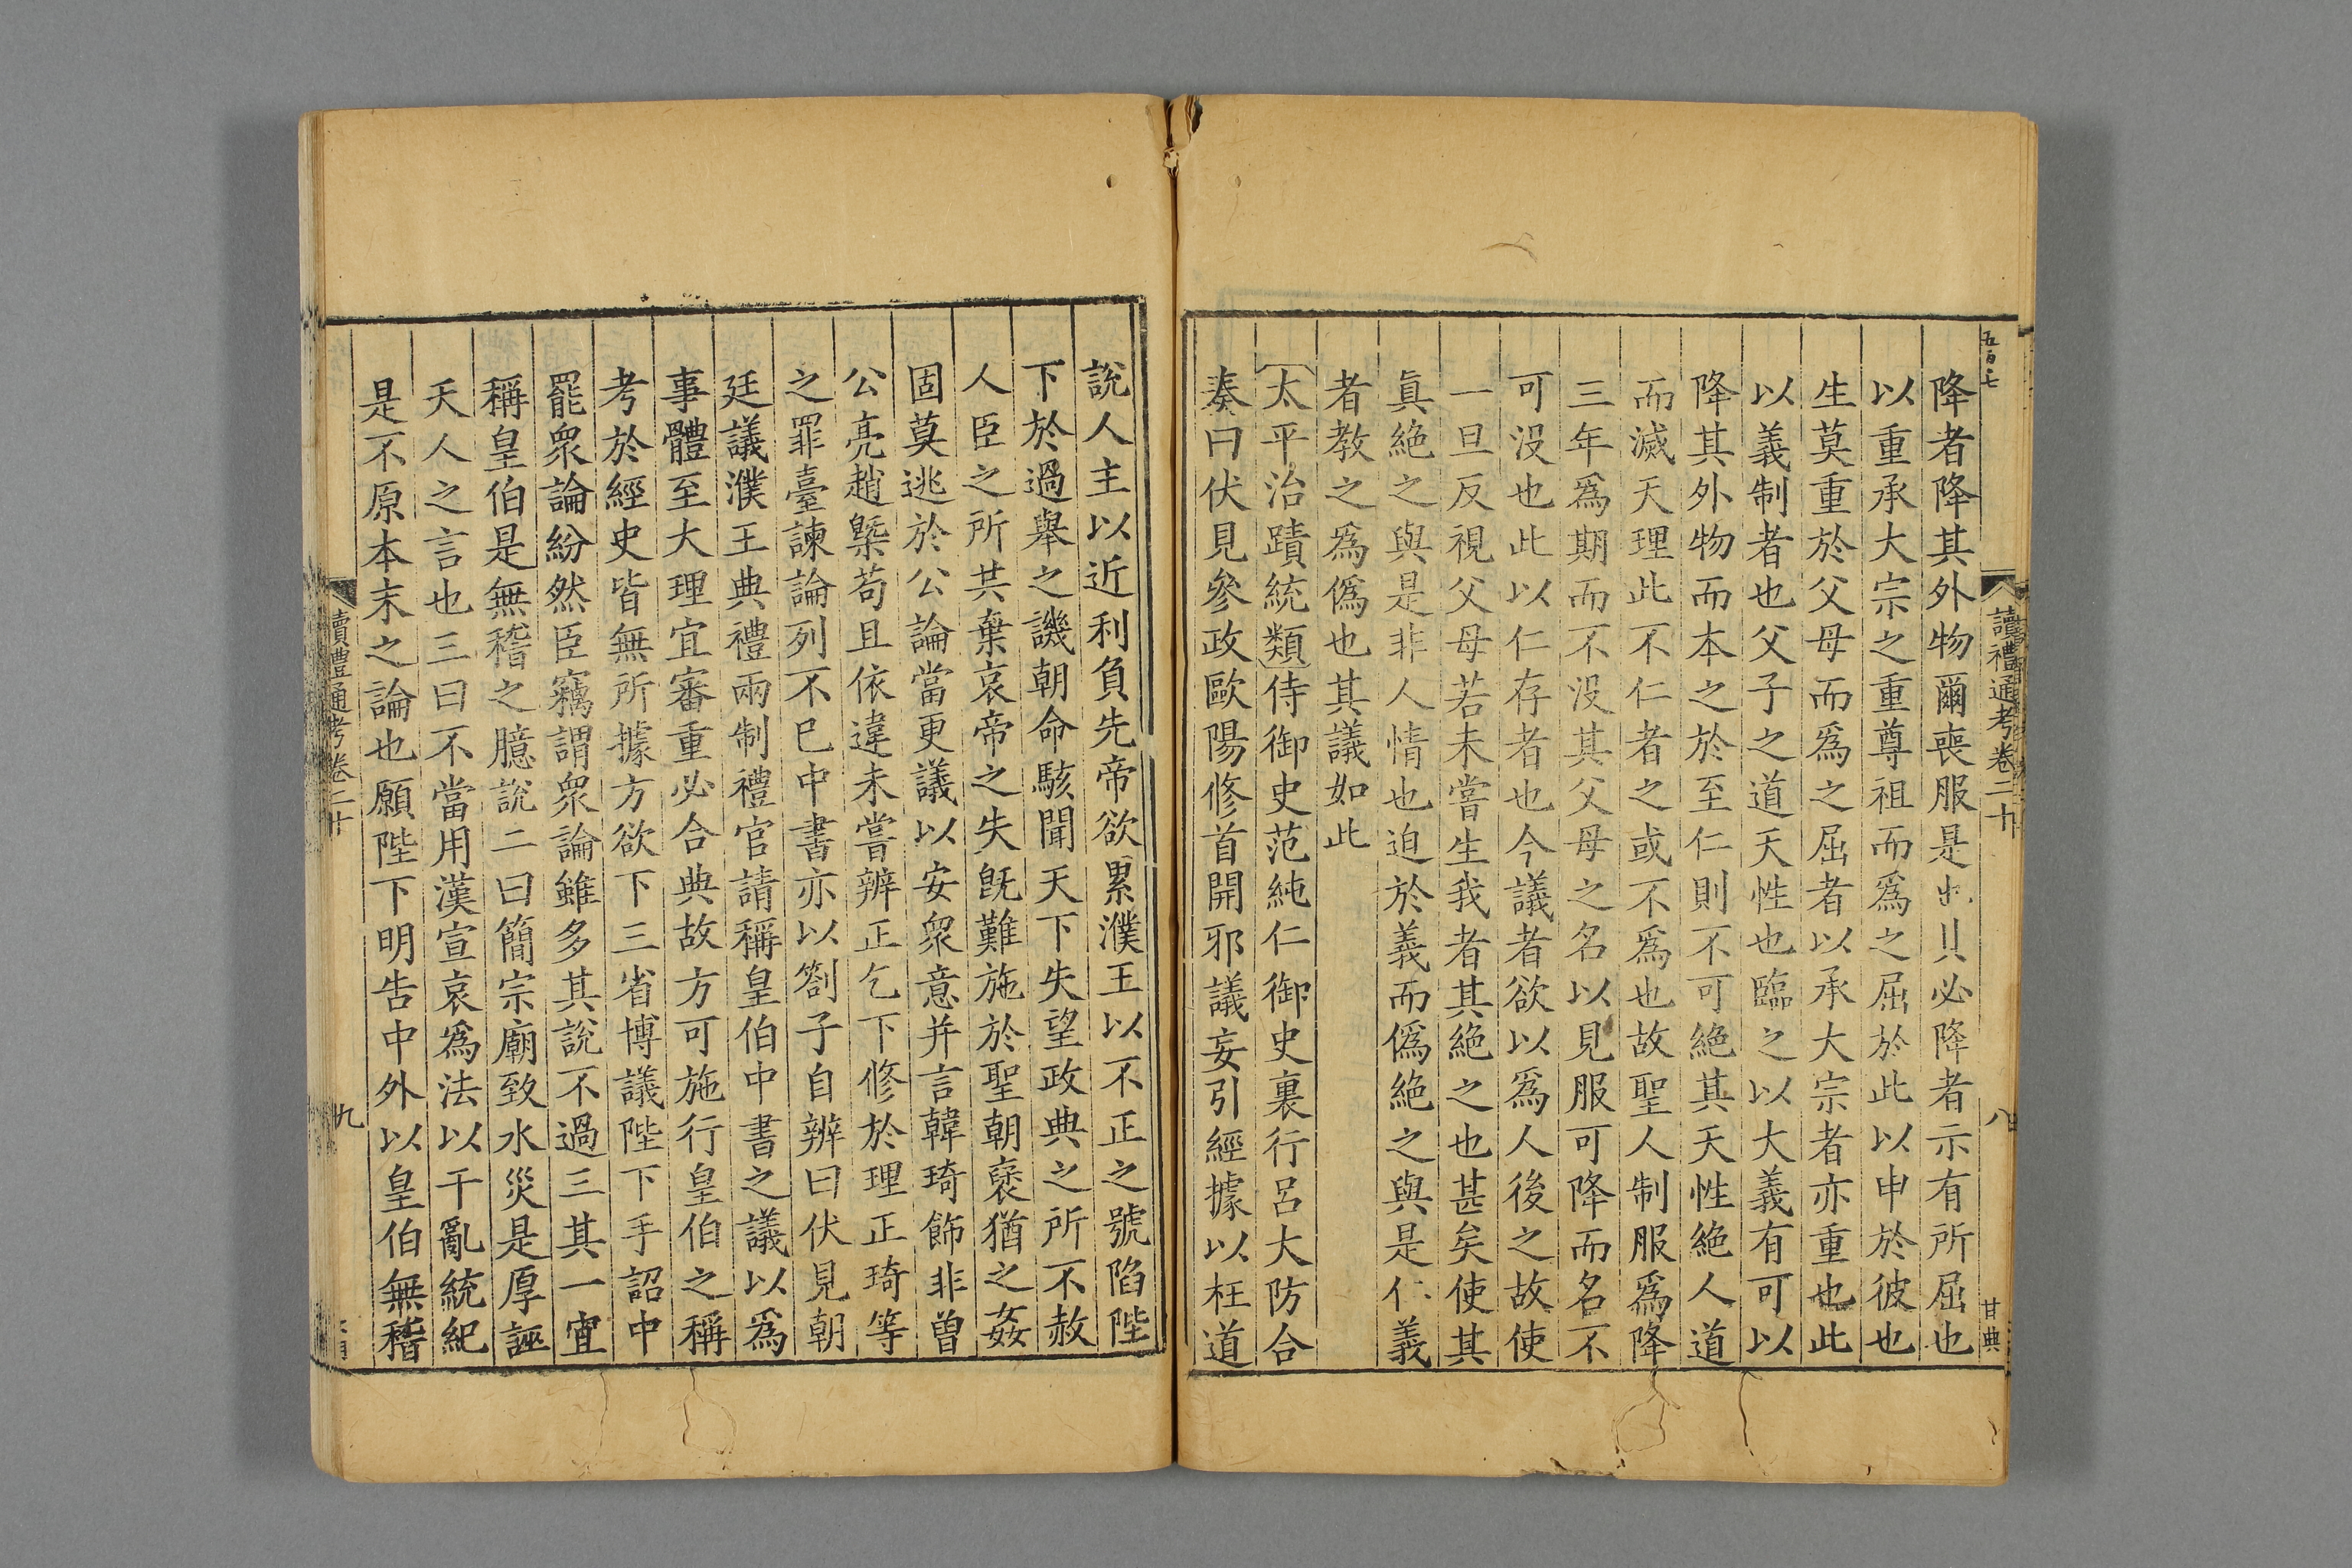 五百七
讀禮通考卷二十
八
甘典
降者降其外物爾喪服是也其必降者示有所屈也
以重承大宗之重尊祖而爲之屈於此以申於彼也
生莫重於父母而爲之屈者以承大宗者亦重也此
以義制者也父子之道天性也臨之以大義有可以
降其外物而本之於至仁則不可絶其天性絶人道
而滅天理此不仁者之或不爲也故聖人制服爲降
三年爲期而不没其父母之名以見服可降而名不
可没也此以仁存者也今議者欲以爲人後之故使
一旦反視父母若未嘗生我者其絶之也甚矣使其
眞絶之與是非人情也迫於義而僞絶之與是仁義
者教之爲僞也其議如此
太平治蹟統類侍御史范純仁御史裏行呂大防合
奏曰伏見參政歐陽修首開邪議妄引經據以枉道
說人主以近利負先帝欲累濮王以不正之號陷陛
下於過舉之譏朝命駭聞天下失望政典之所不赦
人臣之所共棄哀帝之失旣難施於聖朝襃猶之姦
固莫逃於公論當更議以安衆意并言韓琦飾非曾
公亮趙槩苟且依違未嘗辨正乞下修於理正琦等
之罪臺諫論列不巳中書亦以劄子自辨曰伏見朝
廷議濮王典禮兩制禮官請稱皇伯中書之議以爲
事體至大理宜審重必合典故方可施行皇伯之稱
考於經史皆無所據方欲下三省博議陛下手詔中
罷衆論紛然臣竊謂衆論雖多其說不過三其一宜
稱皇伯是無稽之臆說二曰簡宗廟致水災是厚誣
天人之言也三曰不當用漢宣哀爲法以干亂統紀
是不原本末之論也願陛下明告中外以皇伯無稽
讀禮通考卷二十
九